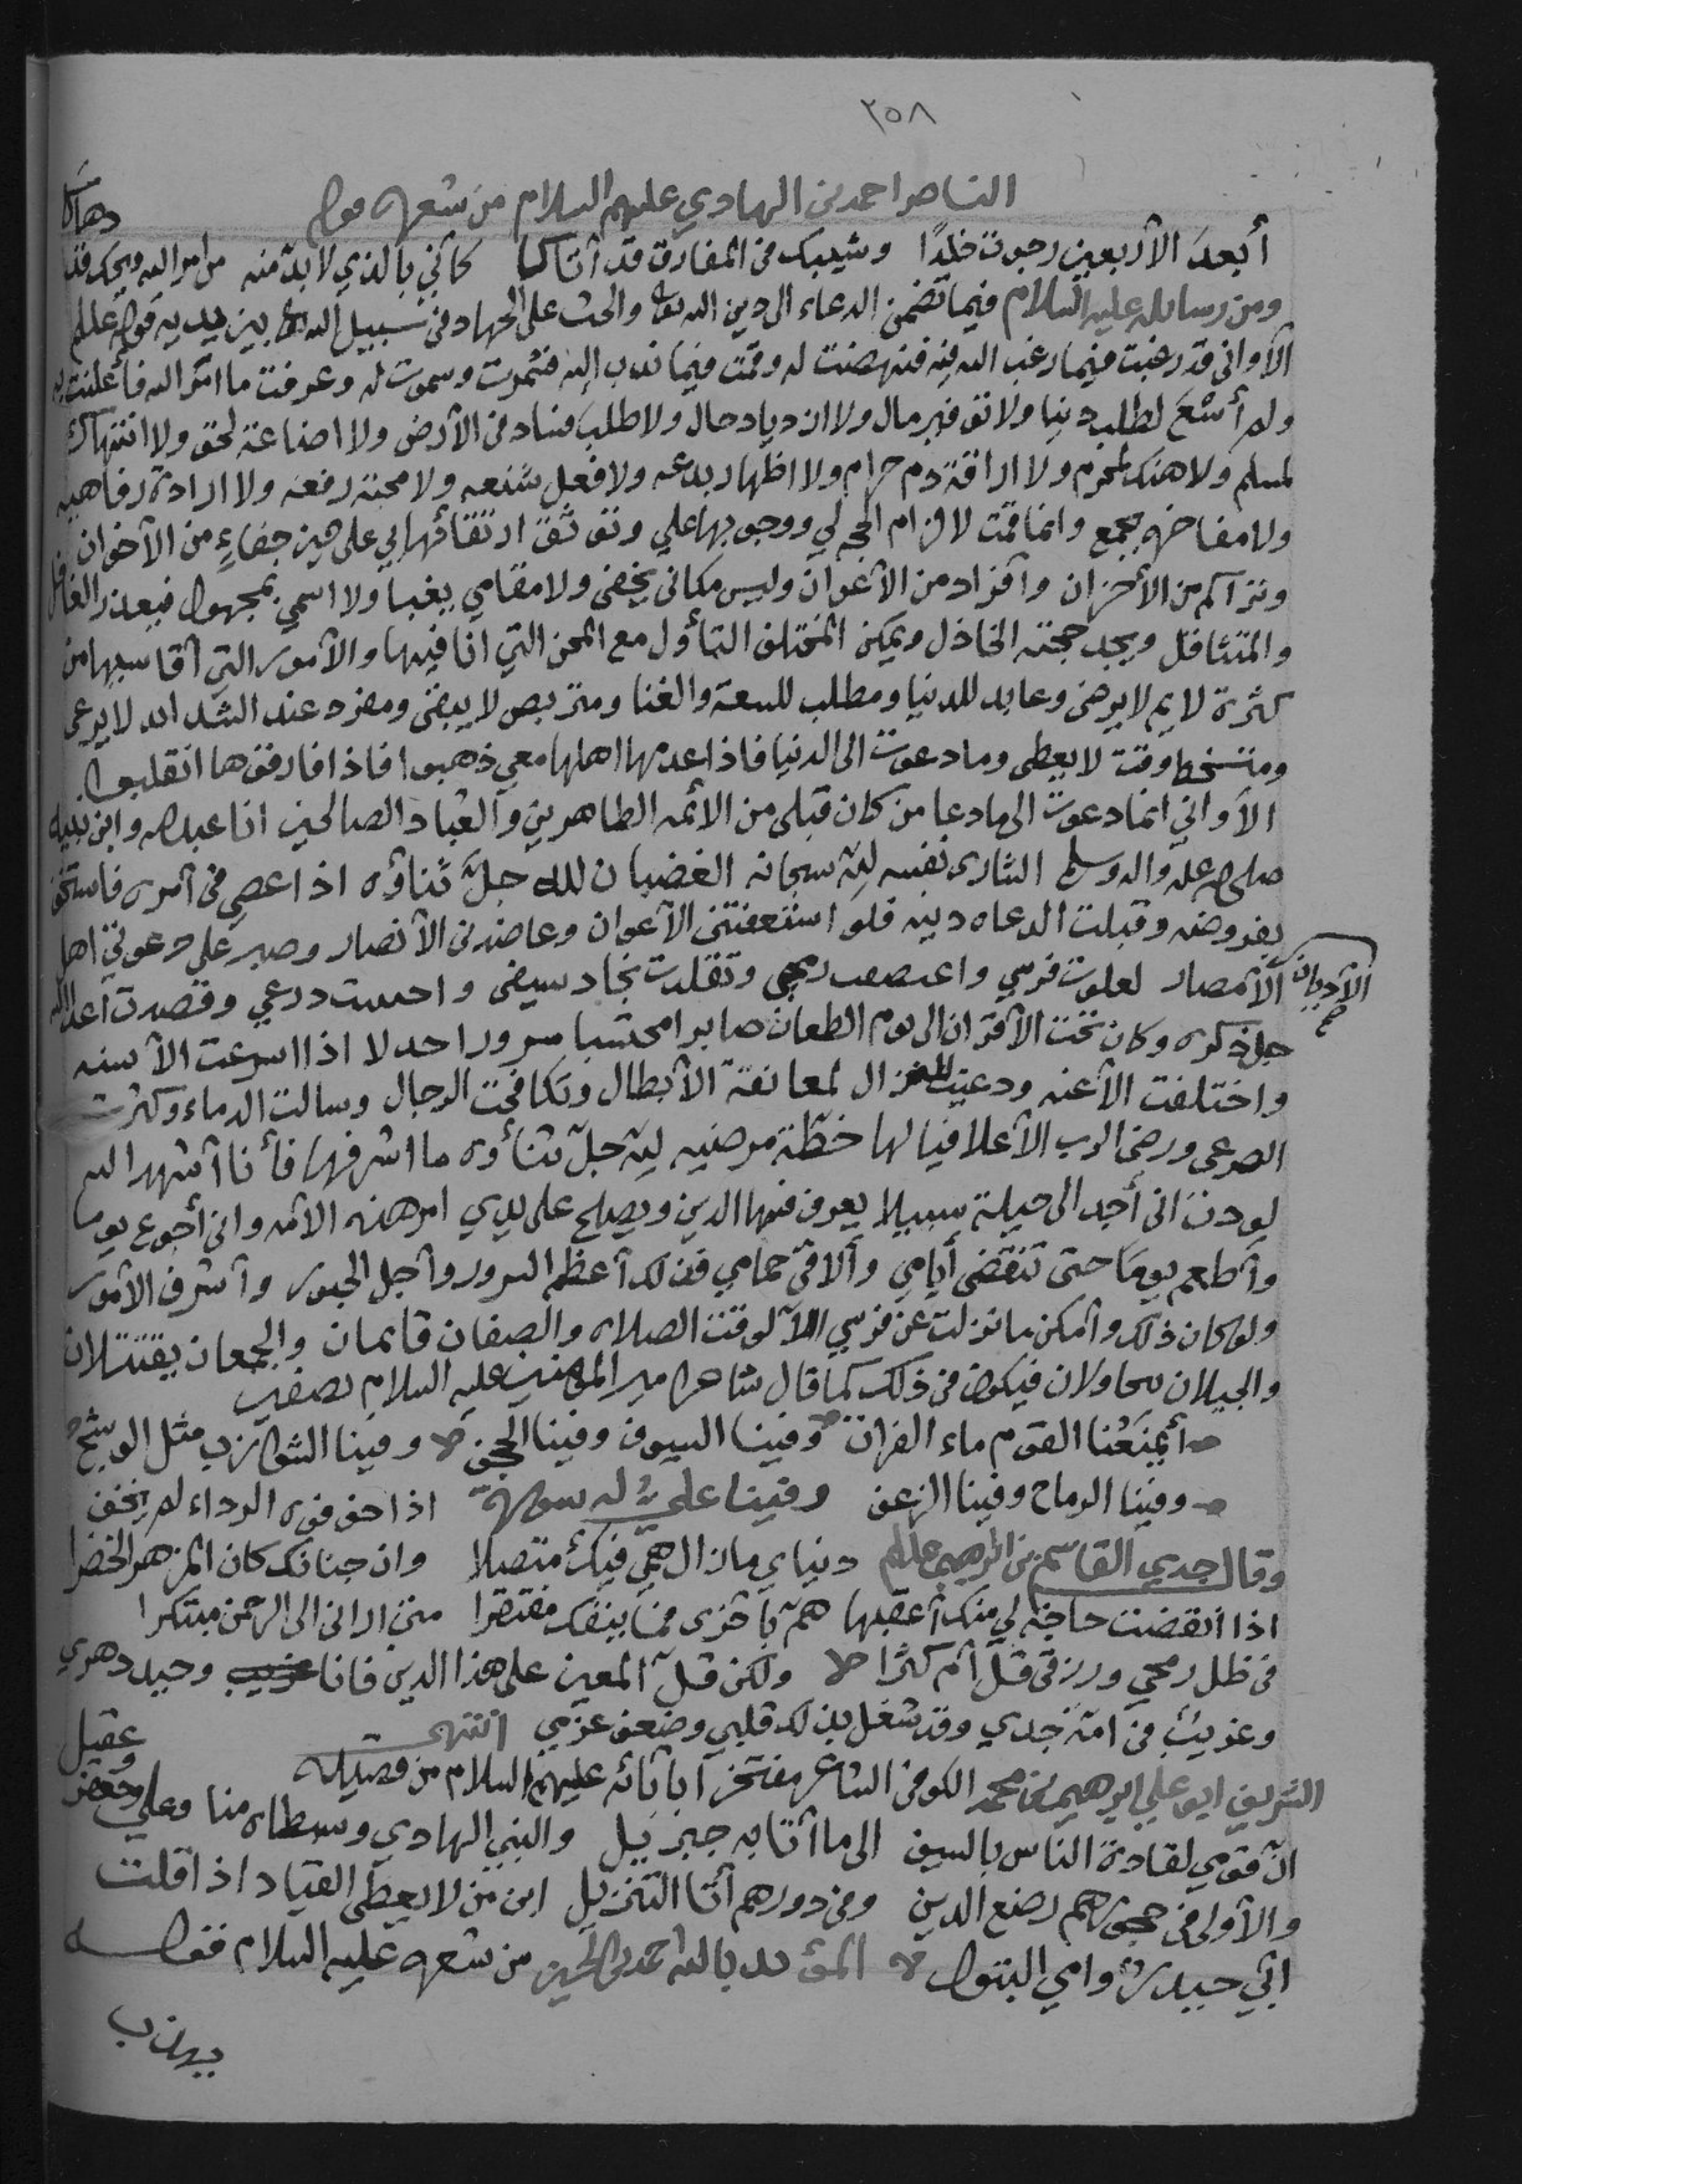 ٢٥٨
الناصر احمد بن الهادي عليهم السلام من شعره قوله
أبعدَ الأربعين رجوت خلدًا وشيبك في المفارق قد أتاكا كأني بالذي لا بد منه من امر الله ويحك قد دهاكا
ومن رسايله عليه السلام فيما تضمن الدعاء الى دين الله تعالى والحث على الجهاد في سبيل الله بين يديه قوله عليلم
الآ واني قد رغبت فيما رغب الله فيه فنهضت له وقمت فيما ندب إليه فشمرت وسموت له وعرفت ما امر الله فأعلنت به
ولم أسْعَ لطلب دنيا ولا توفير مال ولا ازدياد حال ولا طلب فساد في الأرض ولا اضاعة لحق ولا انتهاك
لمسلم ولا هتك لمحرم ولا اراقة دم حرام ولا اظهار بدعه ولا فعل شنعه ولا محبة رفعه ولا ارادة رفاهيه
ولا مفاخره بجمع وانما قمت لالزام الحجه لي ووجوبها علي وتوثق ارتقائها الي على حين جفاءٍ من الآخوان
وتراكم من الأحزان وآفراد من الآعوان وليس مكاني يخفى ولا مقامي يغبا ولا اسمي بمجهول فيعذر الغافل
والمتثاقل ويجد حجته الخاذل ويمكن المختلف التأول مع المحن التي انا فيها والآمور التي آقاسيها من
كثرة لايم لا يرضى وعابد للدنيا ومطلب للسعة والغنا ومتربص لا يبقى ومفرد عند الشدايد لا يرعى
ومتسخط وقت لا يعطى وما دعوت الى الدنيا فاذا عدمها اهلها معي ذهبوا فاذا فارقوها انقلبوا
الآ واني انما دعوت الى ما دعا من كان قبلي من الائمه الطاهرين والعباد الصالحين انا عبدالله وابن نبيه
صلى الله عليه واله وسلم الشارى نفسه لله سبحانه الغضبان لله جلّ ثناؤه اذا عصي في آمره فاستخف
بفروضه وقبلت الدعاه دينه فلو اسعفتني الآعوان وعاضدني الآنصار وصبر على دعوتي اهل
الآديان صح
الآمصار لعلوت فرسي واعتصبت رمحي وتقلدت نجاد سيفي واحسست درعي وقصدت آعداء الله
جل ذكره وكافحت الآقران الى يوم الطعان صابرا محتسبا مسرورا جدلا اذا اسرعت الآسنه
واختلفت الآعنه ودعيت للنزال لمعانقة الآبطال وتكافحت الرجال وسالت الدماء وكثرت
الصرعى ورضى الرب الآعلا فيا لها خطّة مرضيه لله جلّ ثنأوه ما اشرفها فأنا آشهد الله
لوددت انى أجد الى حيلة سبيلا يعرف فيها الدين ويصلح على يدي امر هذه الآمه واني أجوع يوما
وآطعم يومًا حتى تنقضى أيامي وآلاقي حمامي فذلك آعظم السرور وآجل الحبور وآشرف الآمور
ولو كان ذلك وآمكن ما نزلت عن فرسي الآ لوقت الصلاه والصفان قايمان والجمعان يقتتلان
والخيلان يتجاولان فيكون في ذلك كما قال شاعر امير المؤمنين عليه السلام بصفين
أيمنعُنا القوم ماء الفرات وفينا السيوف وفينا الحجف وفينا الشوازب مثل الوشيج
وفينا الرماح وفينا الزغف وفينا عليٌّ له سورة اذا خوفوه الرداء لم يخف
وقال جدي القاسم بن ابراهيم عليلم دنياي ما زال همي فيك متصلا وان جنانك كان المزهر الخضرا
اذا انقضت حاجة لي منك آعقبها همّ بآخرى فما ينفك مفتقرا متى اراني الى الرحمن مبتكرا
في ظل رمحي ورزقي قلّ أم كثُرا ولكن قلّ المعين على هذا الدين فانا وحيد دهري
وغريب في امة جدي وقد شغل بذلك قلبي وضعف عزمي انتهى
الشريف ابو علي ابرهيم بن محمد الكوفي الشاعر مفتخرا بآبائه عليهم السلام من قصيدة
انّ قومي لقادة الناس بالسيف الى ما أتا به جبرئيل والنبي الهادي وسبطاه منا وعلي وجعفر وعقيل
والآولى في حجورهم رضع الدين وفي دورهم أتا التنزيل اين من لا يعطي القياد اذا قلت
ابي حيدرٌ وامي البتول المؤيد بالله احمد بن الحسين من شعره عليه السلام فقوله
يهذب